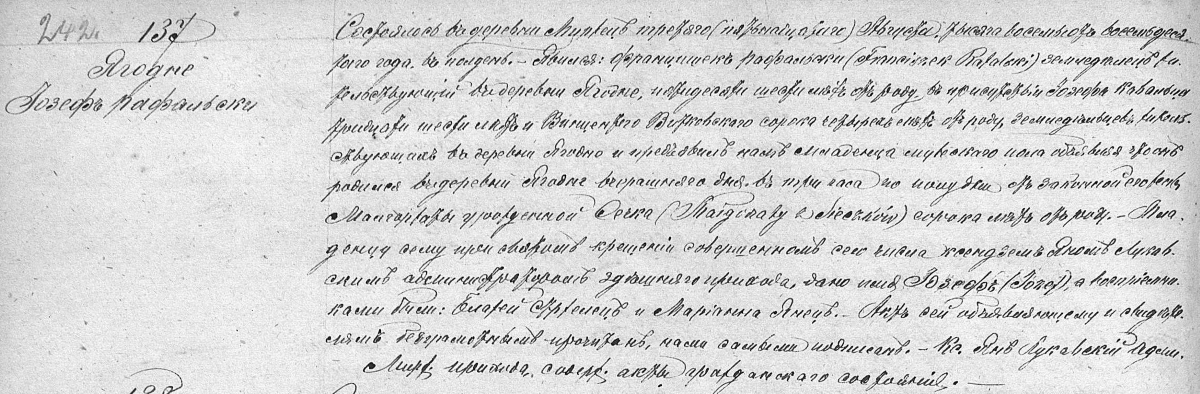 242. 137
Ягодне
Іозефъ Рафальски
Состоялось въ деревни третяго (пятнадцатаго) Августа тысяча восемьсотъ восемьдеся-
таго года, въ полдень. – Явился: Францишекъ Рафальски (Franciszek Rafalski) земледѣлецъ жи-
тельствующій въ деревни Ягодне, пятидесяти шести лѣтъ отъ роду, въ присутствіи Іозефа
тридцати шести лѣтъ и Винцентего Витковского сорока четырехъ лѣтъ отъ роду, земледѣльцевъ, житель-
ствующихъ въ деревни Ягодно и предъявилъ намъ младенца мужескаго пола объявляя что онъ
родился въ деревни Ягодне вчерашняго дня, въ три часа по полудни отъ законной его жены
Малгоржаты урожденной сорока лѣтъ отъ роду. – Мла-
денцу сему при святомъ крещеніи совершенномъ сего числа ксендземъ Яномъ Лукав-
скимъ администраторомъ здѣшняго прихода, дано имя Іозефъ (Józef), а воспріемни-
ками были: Блажей Стрѣлецъ и Маріанна Янецъ. – Актъ сей объявляющему и свидѣте-
лямъ безграмотнымъ прочитанъ, нами самыми подписанъ. – Кс. Янъ Лукавскій Адми.
прихода, содерж. акты гражданского состоянія. –